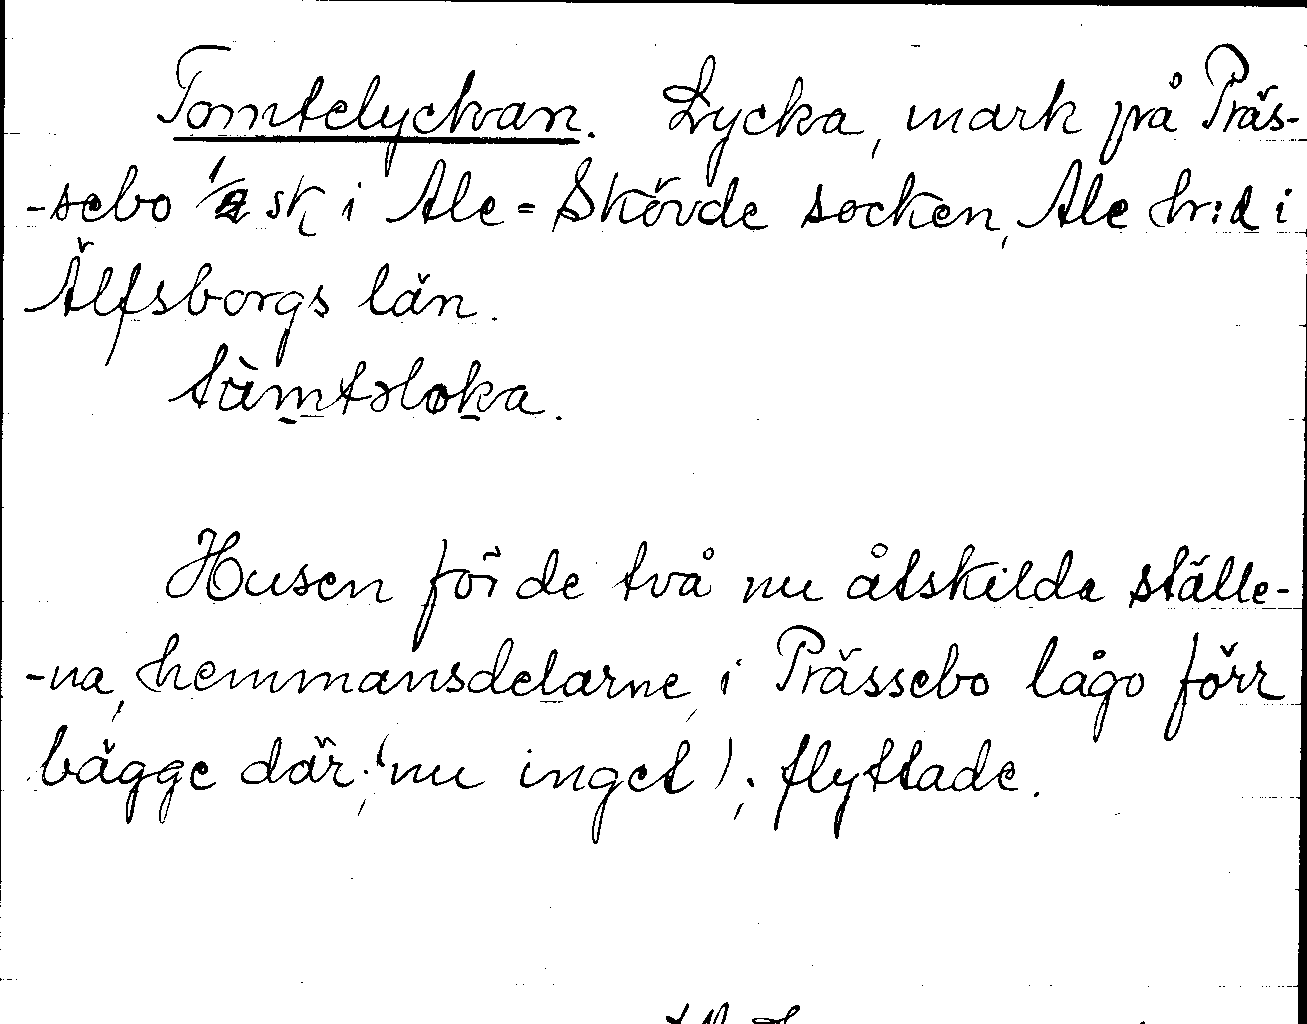 Tomtelyckan. Lycka, mark på Präs-
-sebo 1/2 sk i Ale-Skövde socken, Ale hr:d i
Älfsborgs län.
tùmtəloka.
Husen för de två nu åtskilda ställe-
-na, hemmansdelarne, i Prässebo lågo förr
bägge där; (nu inget); flyttade.